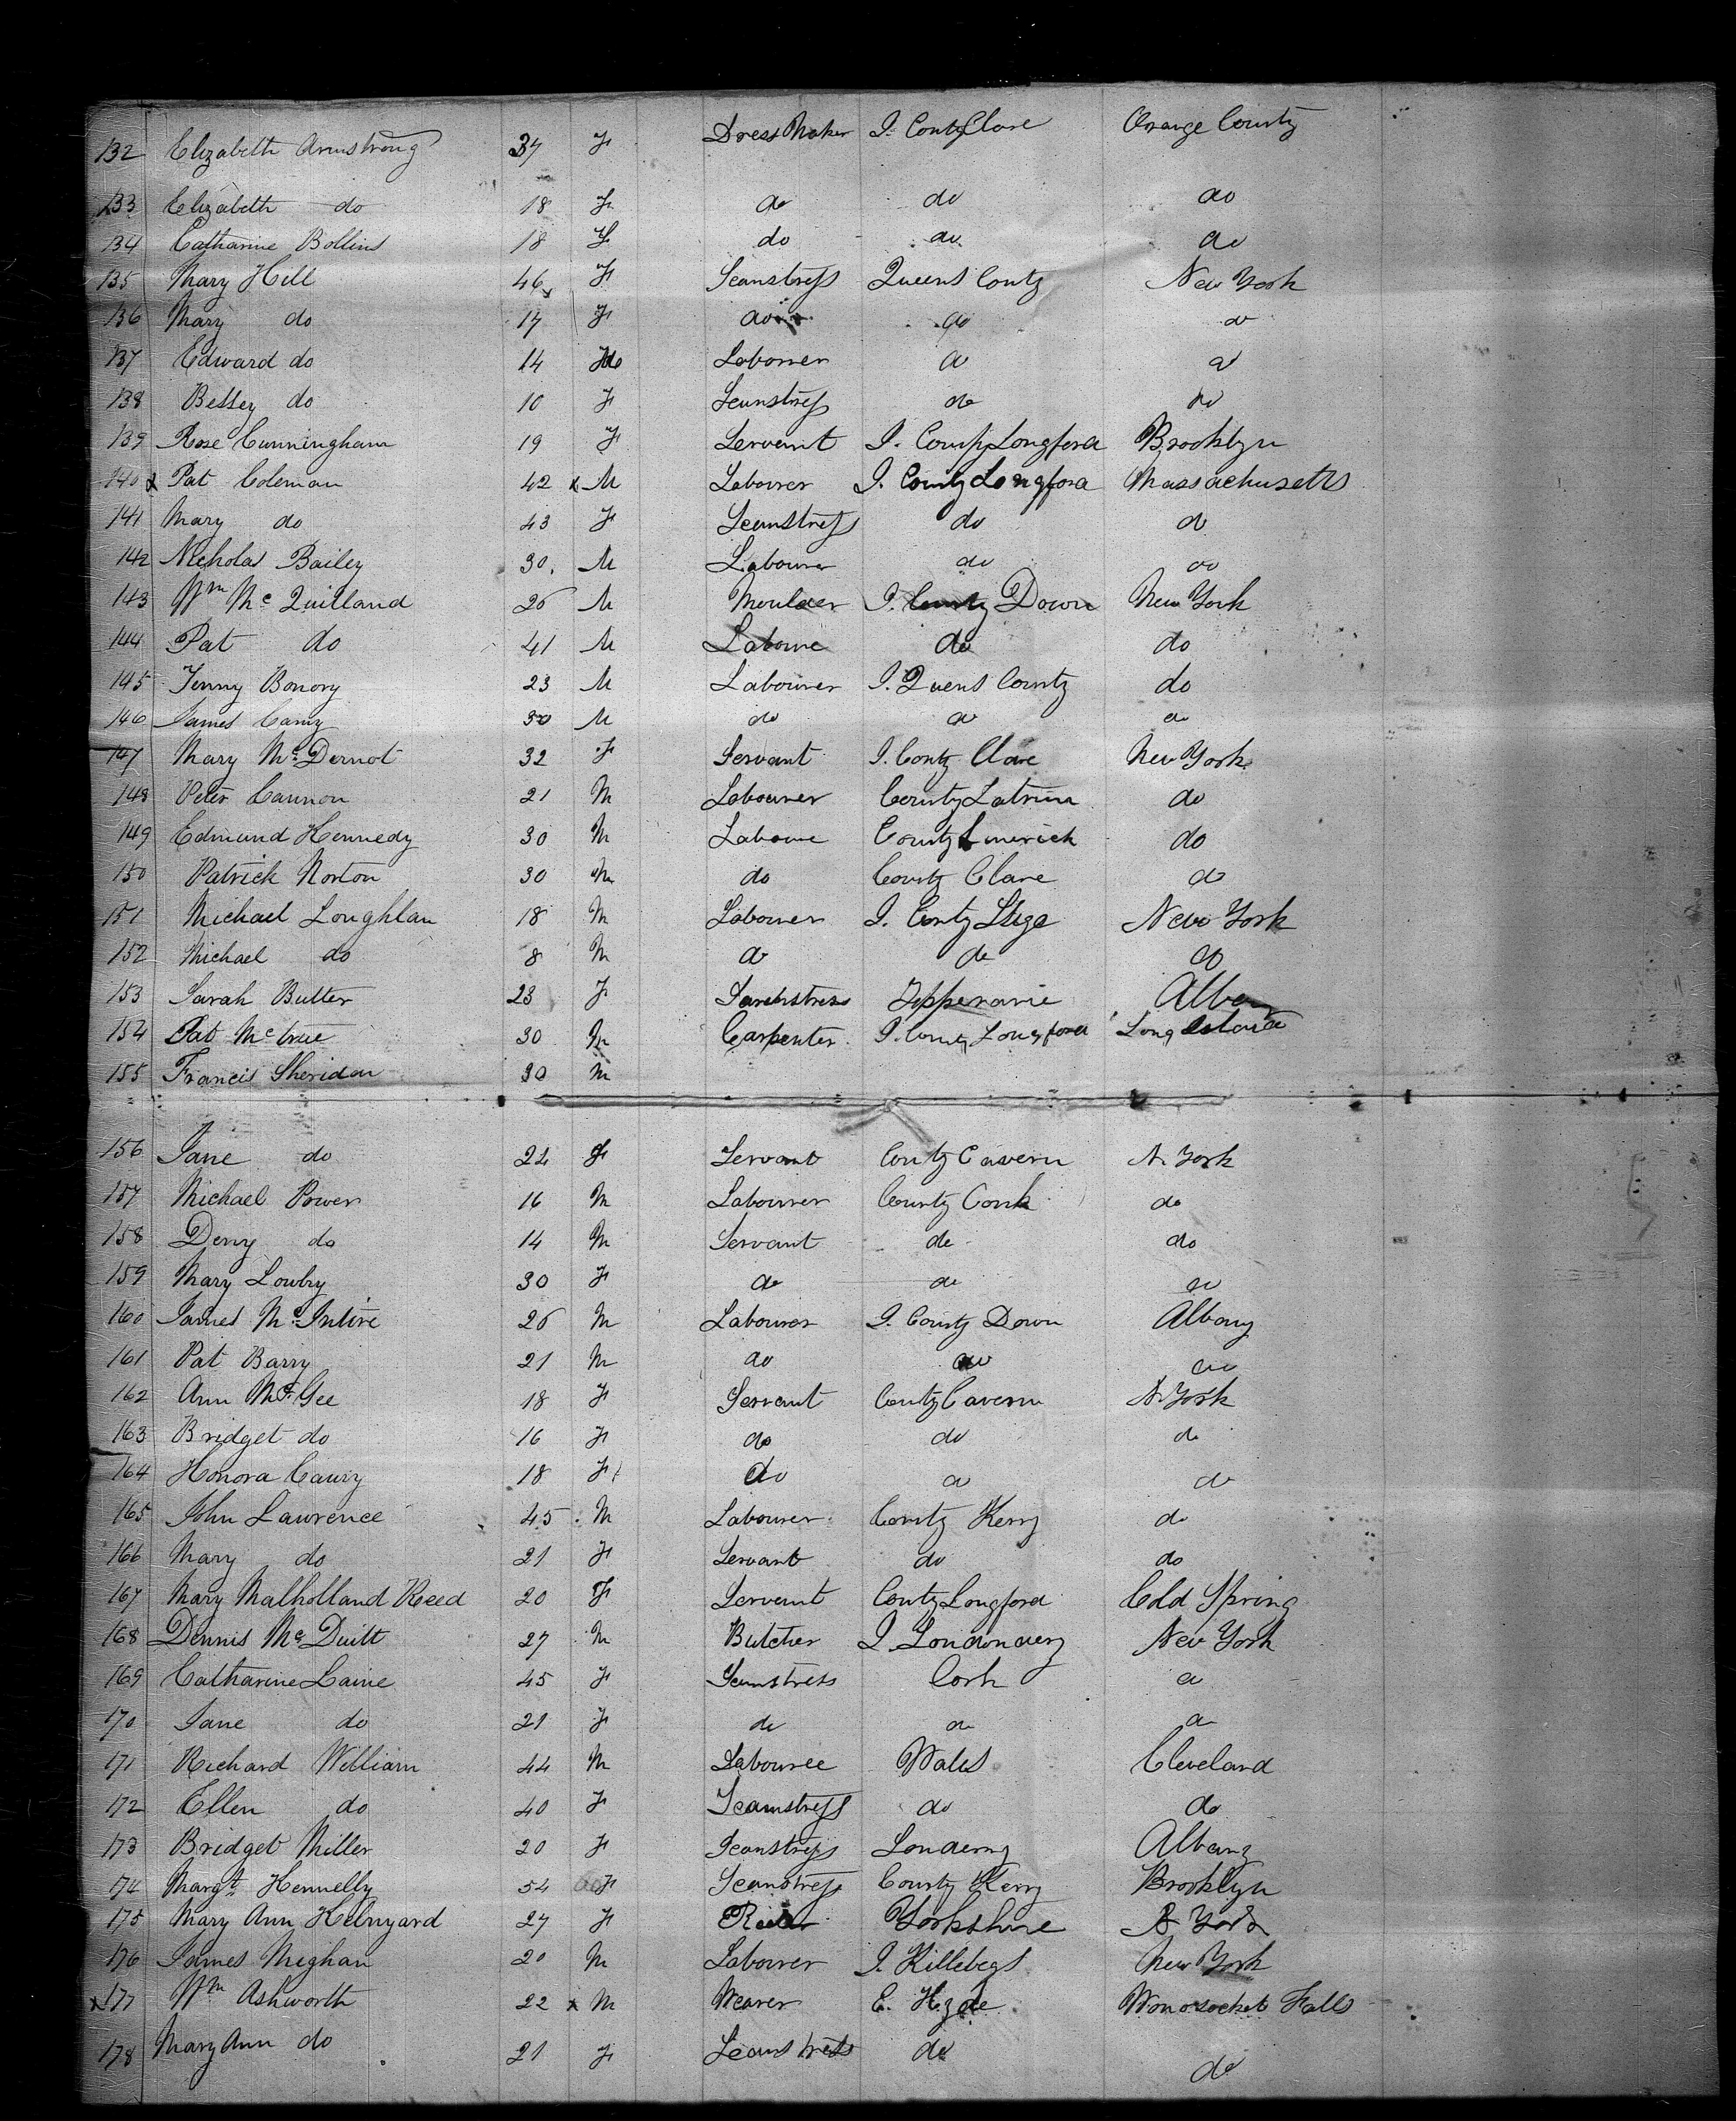 132 Elizabeth Armstrong 37 F Dress Maker I. Conty Clare Orange County
133 Elizabeth do 18 F do do do
134 Catharine Bollins 18 F do do do
135 Mary Hill 46 F Seamstress Queens Conty New York
136 Mary do 17 F do do do
137 Edward do 14 Laborer do do
138 Bessey do 10 F Seamstress do do
139 Rose Cunningham 19 F Servant I. County Longford Brooklyn
140 x Pat Coleman 42 x M Labourer I. County Longford Massachusetts
141 Mary do 43 F Seamstress do do
142 Nicholas Bailey 30. M Labourer do do
143 Wm Mc Quilland 26 M Moulder I. County Down New York
144 Pat do 41 M Laboure do do
145 Bonory 23 M Labourer I. Quens County do
146 James 30 M do do do
147 Mary Mc Dernot 32 F Servant I. Conty Clare New York
148 Peter Cannon 21 M Labourer County Latrim do
149 Edmund Kennedy 30 M Laboure County Limerick do
150 Patrick Norton 30 M do County Clare do
151 Michael Loughlan 18 M Labourer I. Conty Sligo New York
152 Michael do 8 M do do do
153 Sarah Butler 23 F Tipperarie Albany
154 Pat Mc 30 M Carpenter I. County Longford Long Island
155 Francis Sheridan 30 M
156 Jane do 24 F Servant Conty Cavern N. York
157 Michael Power 16 M Labourer County Cork do
158 Deny do 14 M Servant do do
159 Mary Lowby 30 F do do do
160 James Mc Intire 26 M Labourer I. County Down Albany
161 Pat Barry 21 M do do do
162 Ann Mc Gee 18 F Servant Conty Cavern N. York
163 Bridget do 16 F do do do
164 Honora 18 F do do do
165 John Lawrence 45 M Labourer Conty Kerry do
166 Mary do 21 F Servant do do
167 Mary Malholland Reed 20 F Servant Conty Longford Cold Spring
168 Dennis Mc Duitt 27 M Butcher I Londonderry New York
169 Catharine Laine 45 F Seamstress Cork do
170 Jane do 21 F do do do
171 Richard William 44 M Labouree Wales Cleveland
172 Ellen do 40 F Seamstress do do
173 Bridget Miller 20 F Seamstress Londerry Albany
174 Margt. Kennelly 54 F Seamstress County Kerry Brooklyn
175 Mary Ann 27 F Yorkshire N York
176 James Meghan 20 M Labourer I. Killebegs New York
x 177 Wm Ashworth 22 x M Weaver E. Hyde Wonosocket Falls
178 Mary Ann do 21 F Seamstress do do